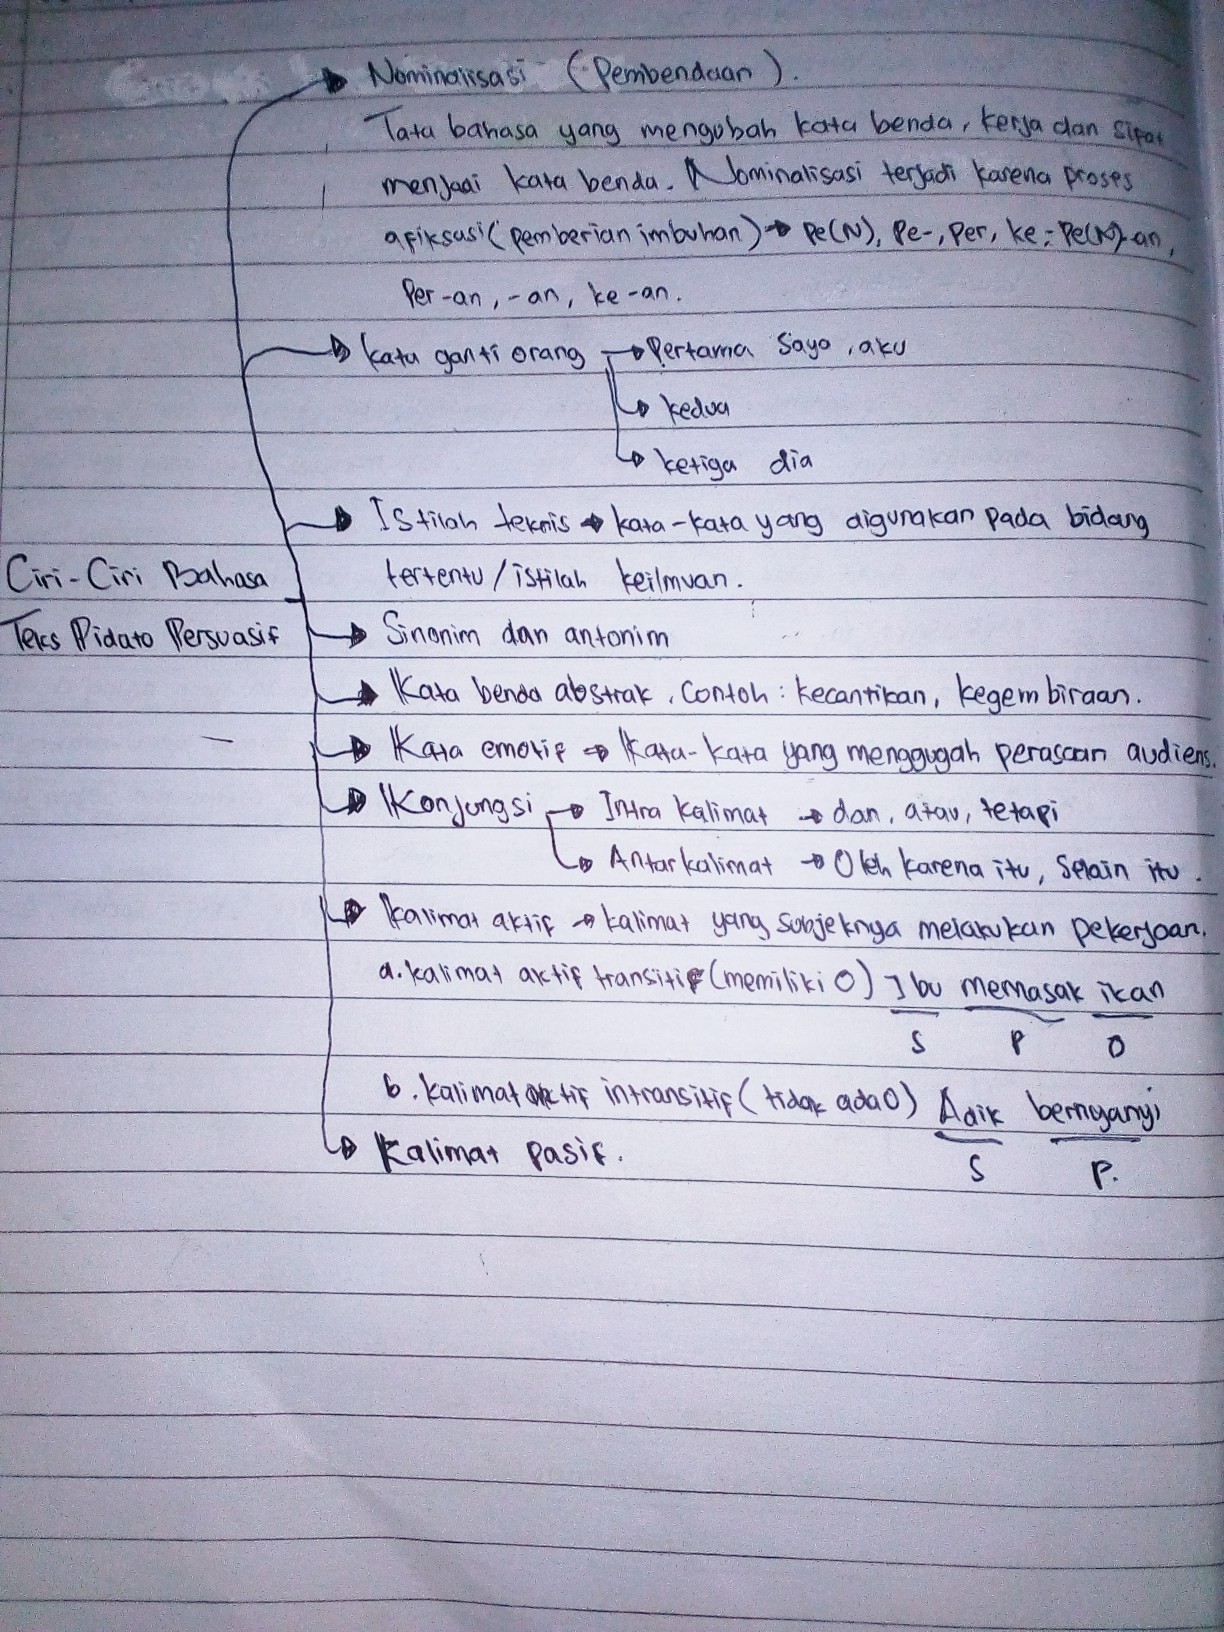 Nominalisasi (Pembendaan).
Tata bahasa yang mengubah kata benda, kerja dan sifat
menjadi kata benda. Nominalisasi terjadi karena proses
afiksasi (pemberian imbuhan) → pe(N), Pe-, Per, ke-, pe(N)-an,
Per-an, -an, ke-an.
kata ganti orang → Pertama Saya, aku
→ kedua
→ ketiga dia
Istilah teknis → kata-kata yang digunakan pada bidang
tertentu/istilah keilmuan.
Ciri-Ciri Bahasa
Teks Pidato Persuasif
Sinonim dan antonim
Kata benda abstrak. Contoh: kecantikan, kegembiraan.
Kata emotif → Kata-kata yang menggugah perasaan audiens.
Konjungsi → Intra Kalimat → dan, atau, tetapi
→ Antarkalimat → Oleh karena itu, Selain itu.
Kalimat aktif → kalimat yang subjeknya melakukan pekerjaan.
a. kalimat aktif transitif (memiliki O) Ibu memasak ikan
S P O
b. kalimat aktif intransitif (tidak ada O) Adik bernyanyi
Kalimat pasif.
S P.